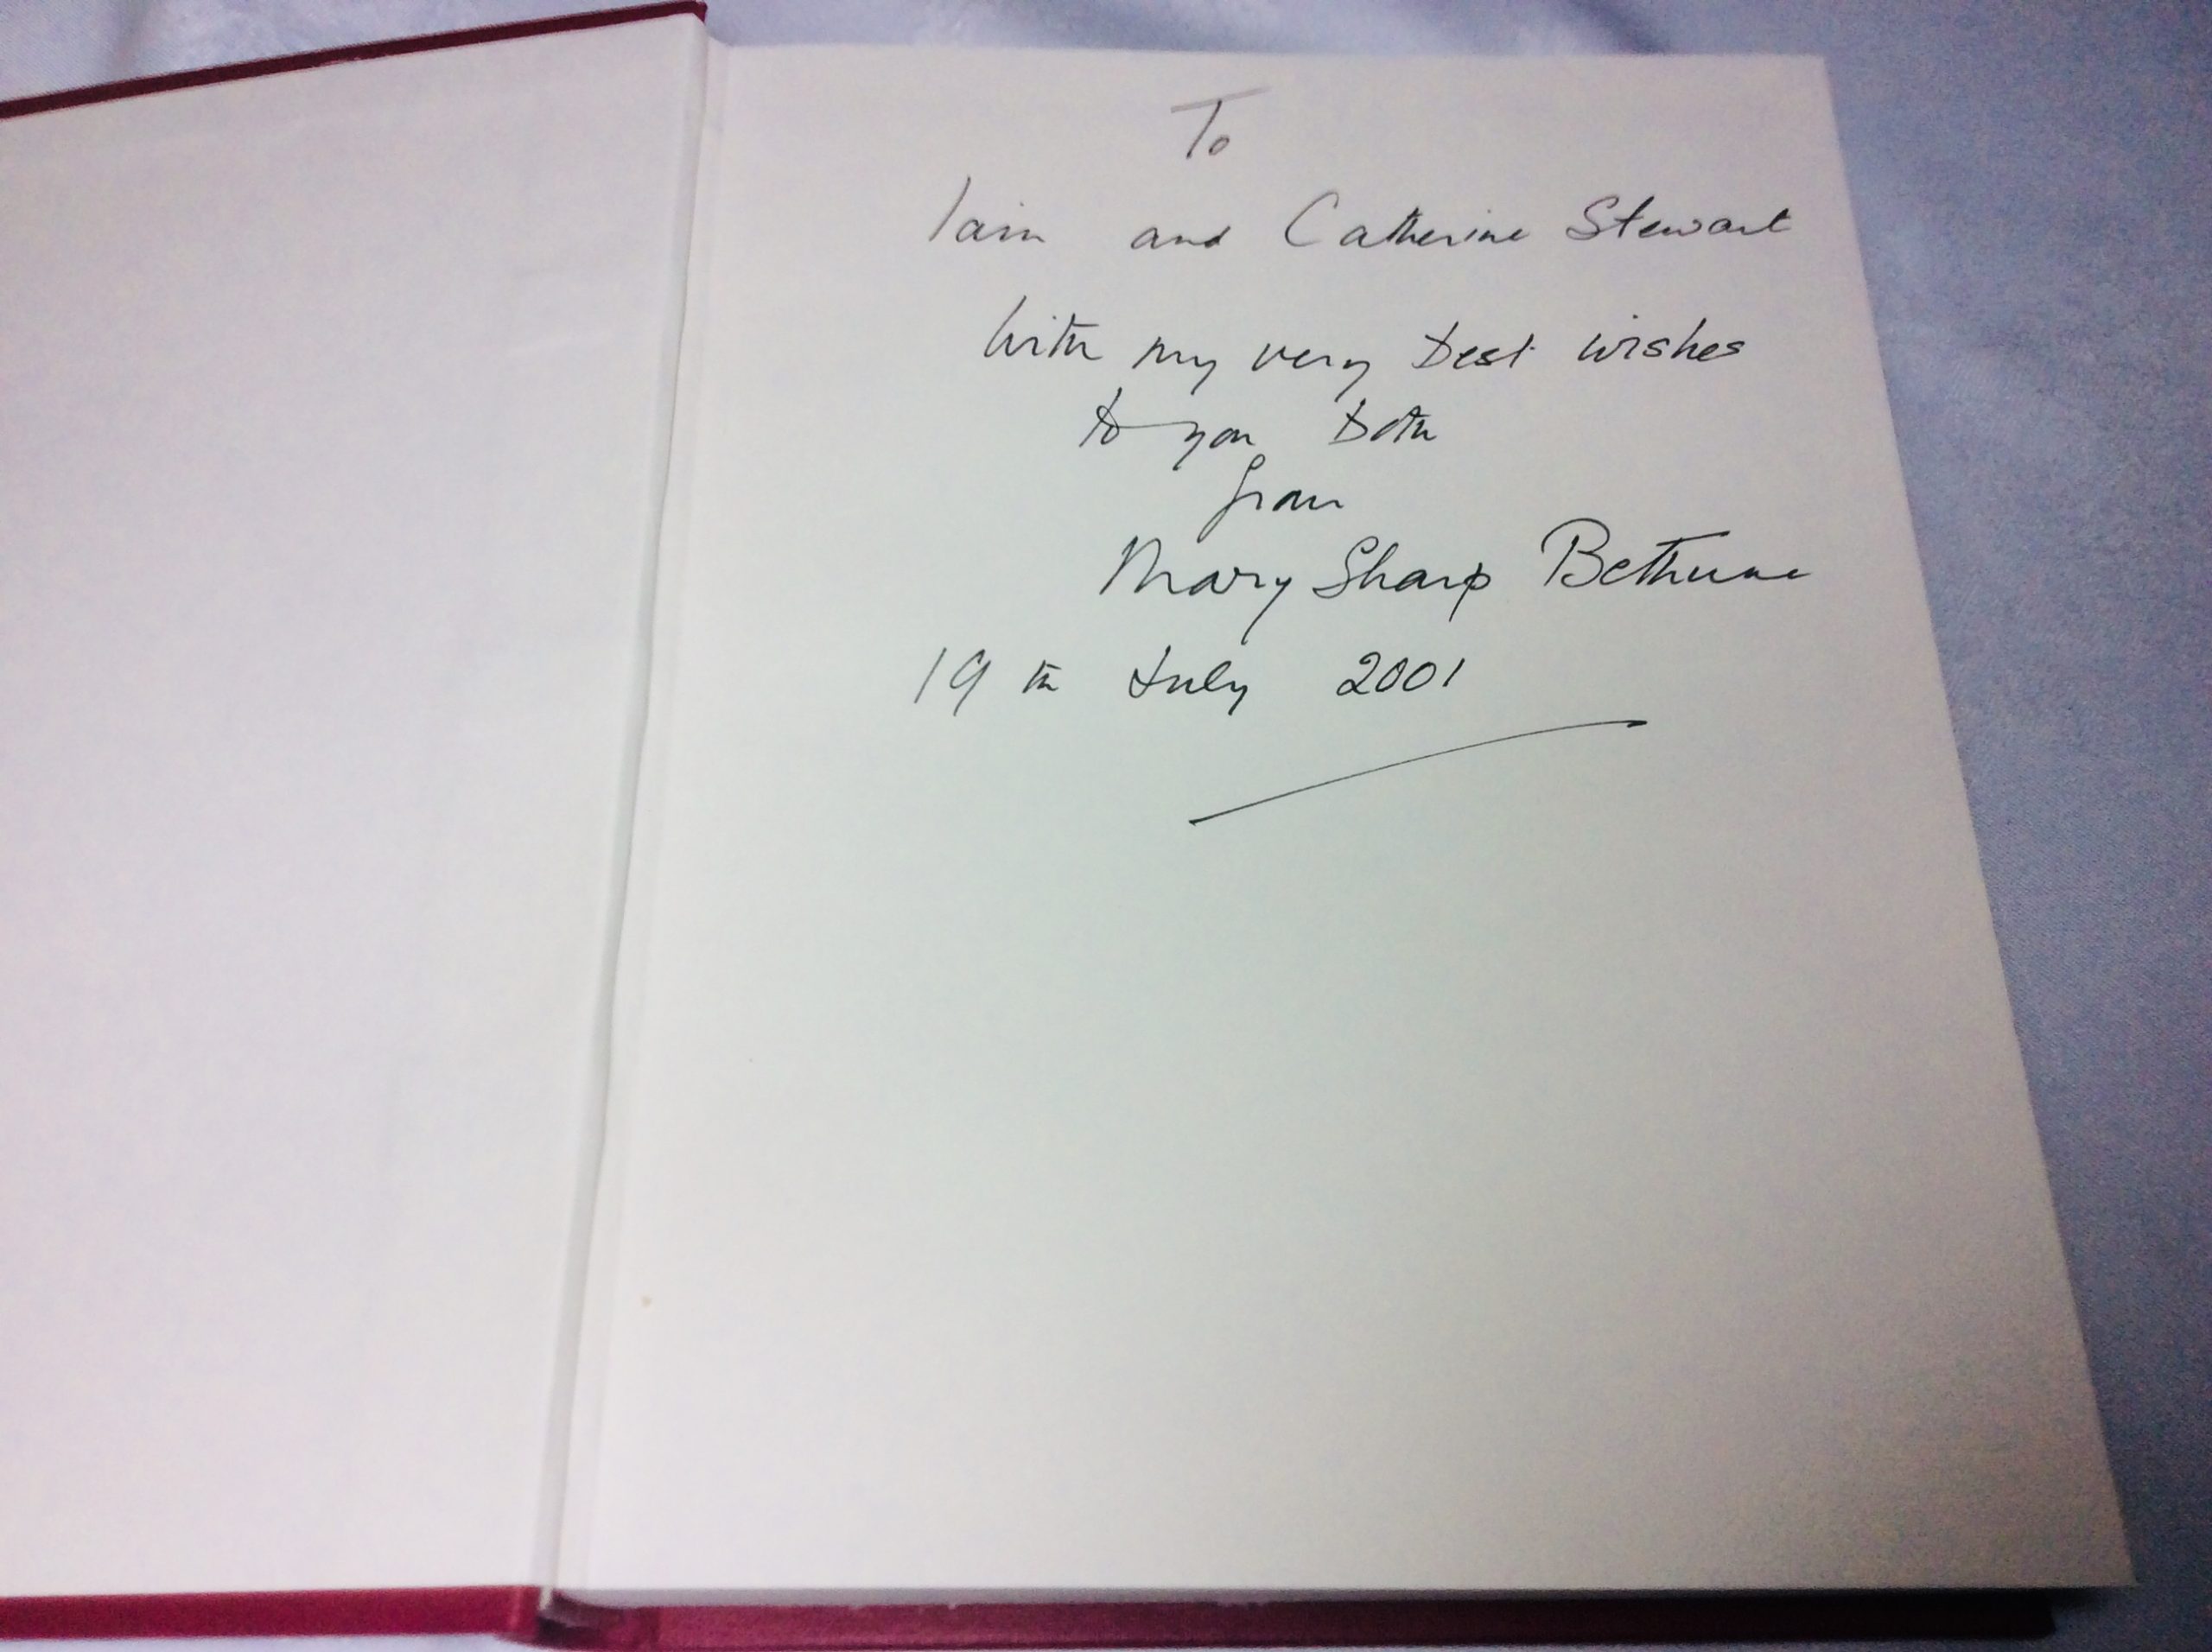 To
Iain and Catherine Stewart
With my very best wishes
to you both
from
Mary Sharp Bethune
19th July 2001